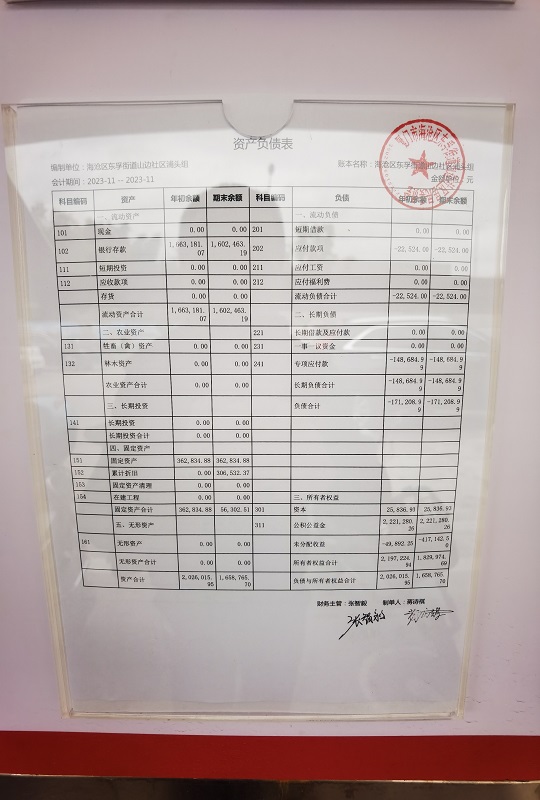 资产负债表
编制单位：海沧区东孚街道山边社区湘头组 账本名称：海沧区东孚街道山边社区湘头组
会计期间：2023-11 -- 2023-11 金额单位：元
科目编码 资产 年初余额 期末余额 科目编码 负债 年初余额 期末余额
一、流动资产 一、流动负债
101 现金 0.00 0.00 201 短期借款 0.00 0.00
102 银行存款 1,663,181.07 1,602,463.19 202 应付款项 -22,524.00 -22,524.00
111 短期投资 0.00 0.00 211 应付工资 0.00 0.00
112 应收款项 0.00 0.00 212 应付福利费 0.00 0.00
存货 0.00 0.00 流动负债合计 -22,524.00 -22,524.00
流动资产合计 1,663,181.07 1,602,463.19 二、长期负债
二、农业资产 221 长期借款及应付款 0.00 0.00
131 牲畜（禽）资产 0.00 0.00 231 一事一议资金 0.00 0.00
132 林木资产 0.00 0.00 241 专项应付款 -148,684.99 -148,684.99
农业资产合计 0.00 0.00 长期负债合计 -148,684.99 -148,684.99
三、长期投资 负债合计 -171,208.99 -171,208.99
141 长期投资 0.00 0.00
长期投资合计 0.00 0.00
四、固定资产
151 固定资产 362,834.88 362,834.88
152 累计折旧 0.00 306,532.37
153 固定资产清理 0.00 0.00
154 在建工程 0.00 0.00 三、所有者权益
固定资产合计 362,834.88 56,302.51 301 资本 25,836.93 25,836.93
五、无形资产 311 公积公益金 2,221,280.26 2,221,280.26
161 无形资产 0.00 0.00 未分配收益 -49,892.25 -417,142.50
无形资产合计 0.00 0.00 所有者权益合计 2,197,224.94 1,829,974.69
资产合计 2,026,015.95 1,658,765.70 负债与所有者权益合计 2,026,015.95 1,658,765.70
财务主管：张智毅 制单人：蒋诗祺